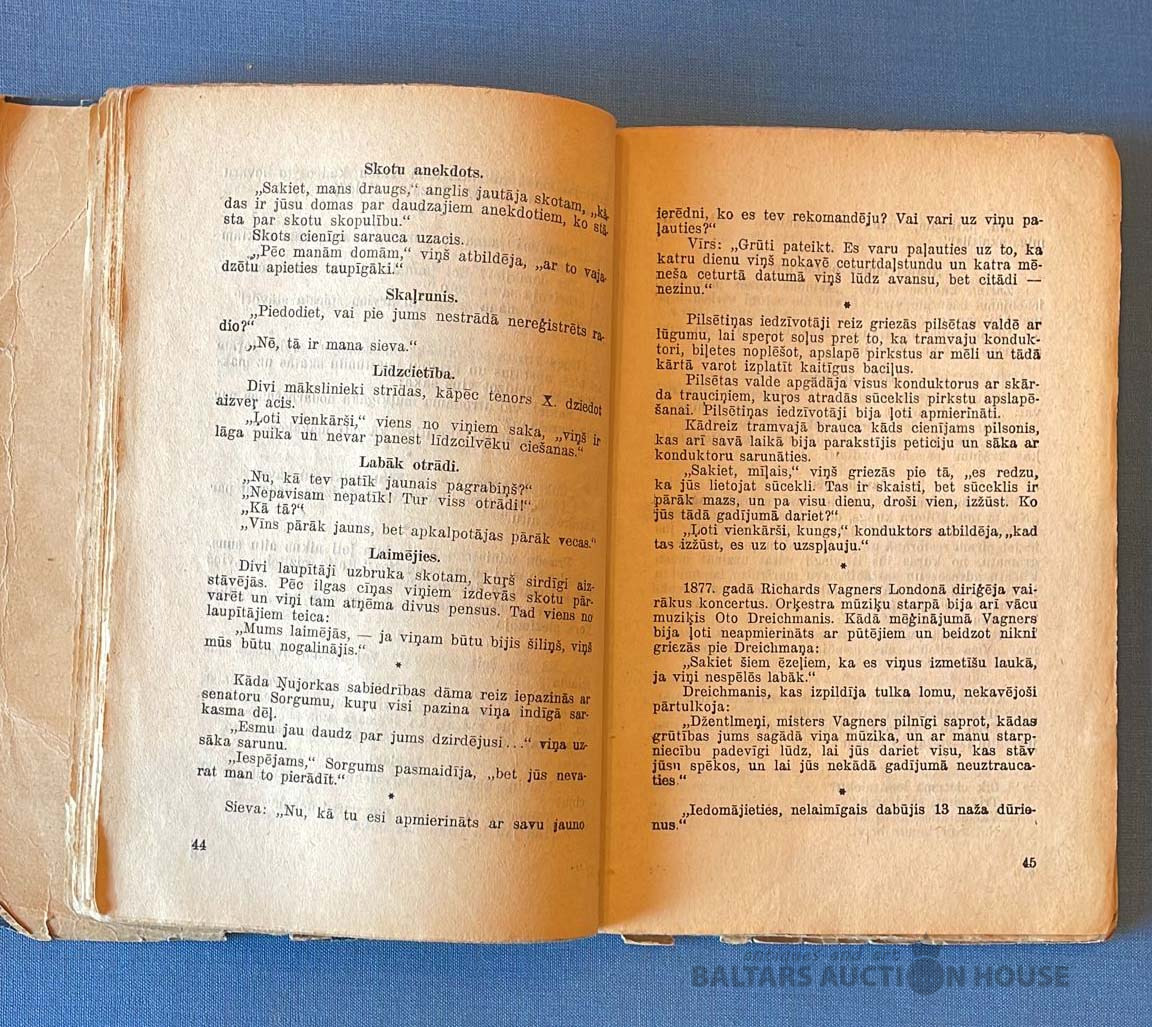 Skotu anekdots.
„Sakiet, mans draugs,“ anglis jautāja skotam, „kā-
das ir jūsu domas par daudzajiem anekdotiem, ko stā-
sta par skotu skopulību.“
Skots cienīgi sarauca uzacis.
„Pēc manām domām,“ viņš atbildēja, „ar to vaja-
dzētu apieties taupīgāki.“
Skaļrunis.
„Piedodiet, vai pie jums nestrādā nereģistrēts ra-
dio?“
„Nē, tā ir mana sieva.“
Līdzcietība.
Divi mākslinieki strīdas, kāpēc tenors X. dziedot
aizveŗ acis.
„Ļoti vienkārši,“ viens no viņiem saka, „viņš ir
lāga puika un nevar panest līdzcilvēku ciešanas.“
Labāk otrādi.
„Nu, kā tev patīk jaunais pagrabiņš?“
„Nepavisam nepatīk! Tur viss otrādi!“
„Kā tā?“
„Vīns pārāk jauns, bet apkalpotājas pārāk vecas.“
Laimējies.
Divi laupītāji uzbruka skotam, kuŗš sirdīgi aiz-
stāvējās. Pēc ilgas cīņas viņiem izdevās skotu pār-
varēt un viņi tam atņēma divus pensus. Tad viens no
laupītājiem teica:
„Mums laimējās, — ja viņam būtu bijis šiliņš, viņš
mūs būtu nogalinājis.“
*
Kāda Ņujorkas sabiedrības dāma reiz iepazinās ar
senatoru Sorgumu, kuŗu visi pazina viņa indīgā sar-
kasma dēļ.
„Esmu jau daudz par jums dzirdējusi...“ viņa uz-
sāka sarunu.
„Iespējams,“ Sorgums pasmaidīja, „bet jūs neva-
rat man to pierādīt.“
*
Sieva: „Nu, kā tu esi apmierināts ar savu jauno
44
ierēdni, ko es tev rekomandēju? Vai vari uz viņu pa-
ļauties?“
Vīrs: „Grūti pateikt. Es varu paļauties uz to, ka
katru dienu viņš nokavē ceturtdaļstundu un katra mē-
neša ceturtā datumā viņš lūdz avansu, bet citādi —
nezinu.“
*
Pilsētiņas iedzīvotāji reiz griezās pilsētas valdē ar
lūgumu, lai speŗot soļus pret to, ka tramvaju konduk-
tori, biļetes noplēšot, apslapē pirkstus ar mēli un tādā
kārtā varot izplatīt kaitīgus baciļus.
Pilsētas valde apgādāja visus konduktorus ar skār-
da trauciņiem, kuŗos atradās sūceklis pirkstu apslapē-
šanai. Pilsētiņas iedzīvotāji bija ļoti apmierināti.
Kādreiz tramvajā brauca kāds cienījams pilsonis,
kas arī savā laikā bija parakstījis peticiju un sāka ar
konduktoru sarunāties.
„Sakiet, mīļais,“ viņš griezās pie tā, „es redzu,
ka jūs lietojat sūcekli. Tas ir skaisti, bet sūceklis ir
pārāk mazs, un pa visu dienu, droši vien, izžūst. Ko
jūs tādā gadījumā dariet?“
„Ļoti vienkārši, kungs,“ konduktors atbildēja, „kad
tas izžūst, es uz to uzspļauju.“
*
1877. gadā Richards Vagners Londonā diriģēja vai-
rākus koncertus. Orķestra mūziķu starpā bija arī vācu
muziķis Oto Dreichmanis. Kādā mēģinājumā Vagners
bija ļoti neapmierināts ar pūtējiem un beidzot nikni
griezās pie Dreichmaņa:
„Sakiet šiem ēzeļiem, ka es viņus izmetīšu laukā,
ja viņi nespēlēs labāk.“
Dreichmanis, kas izpildīja tulka lomu, nekavējoši
pārtulkoja:
„Džentlmeņi, misters Vagners pilnīgi saprot, kādas
grūtības jums sagādā viņa mūzika, un ar manu starp-
niecību padevīgi lūdz, lai jūs dariet visu, kas stāv
jūsu spēkos, un lai jūs nekādā gadījumā neuztrauca-
ties.“
*
„Iedomājieties, nelaimīgais dabūjis 13 naža dūrie-
nus.“
45
antiques and art
BALTARS AUCTION HOUSE